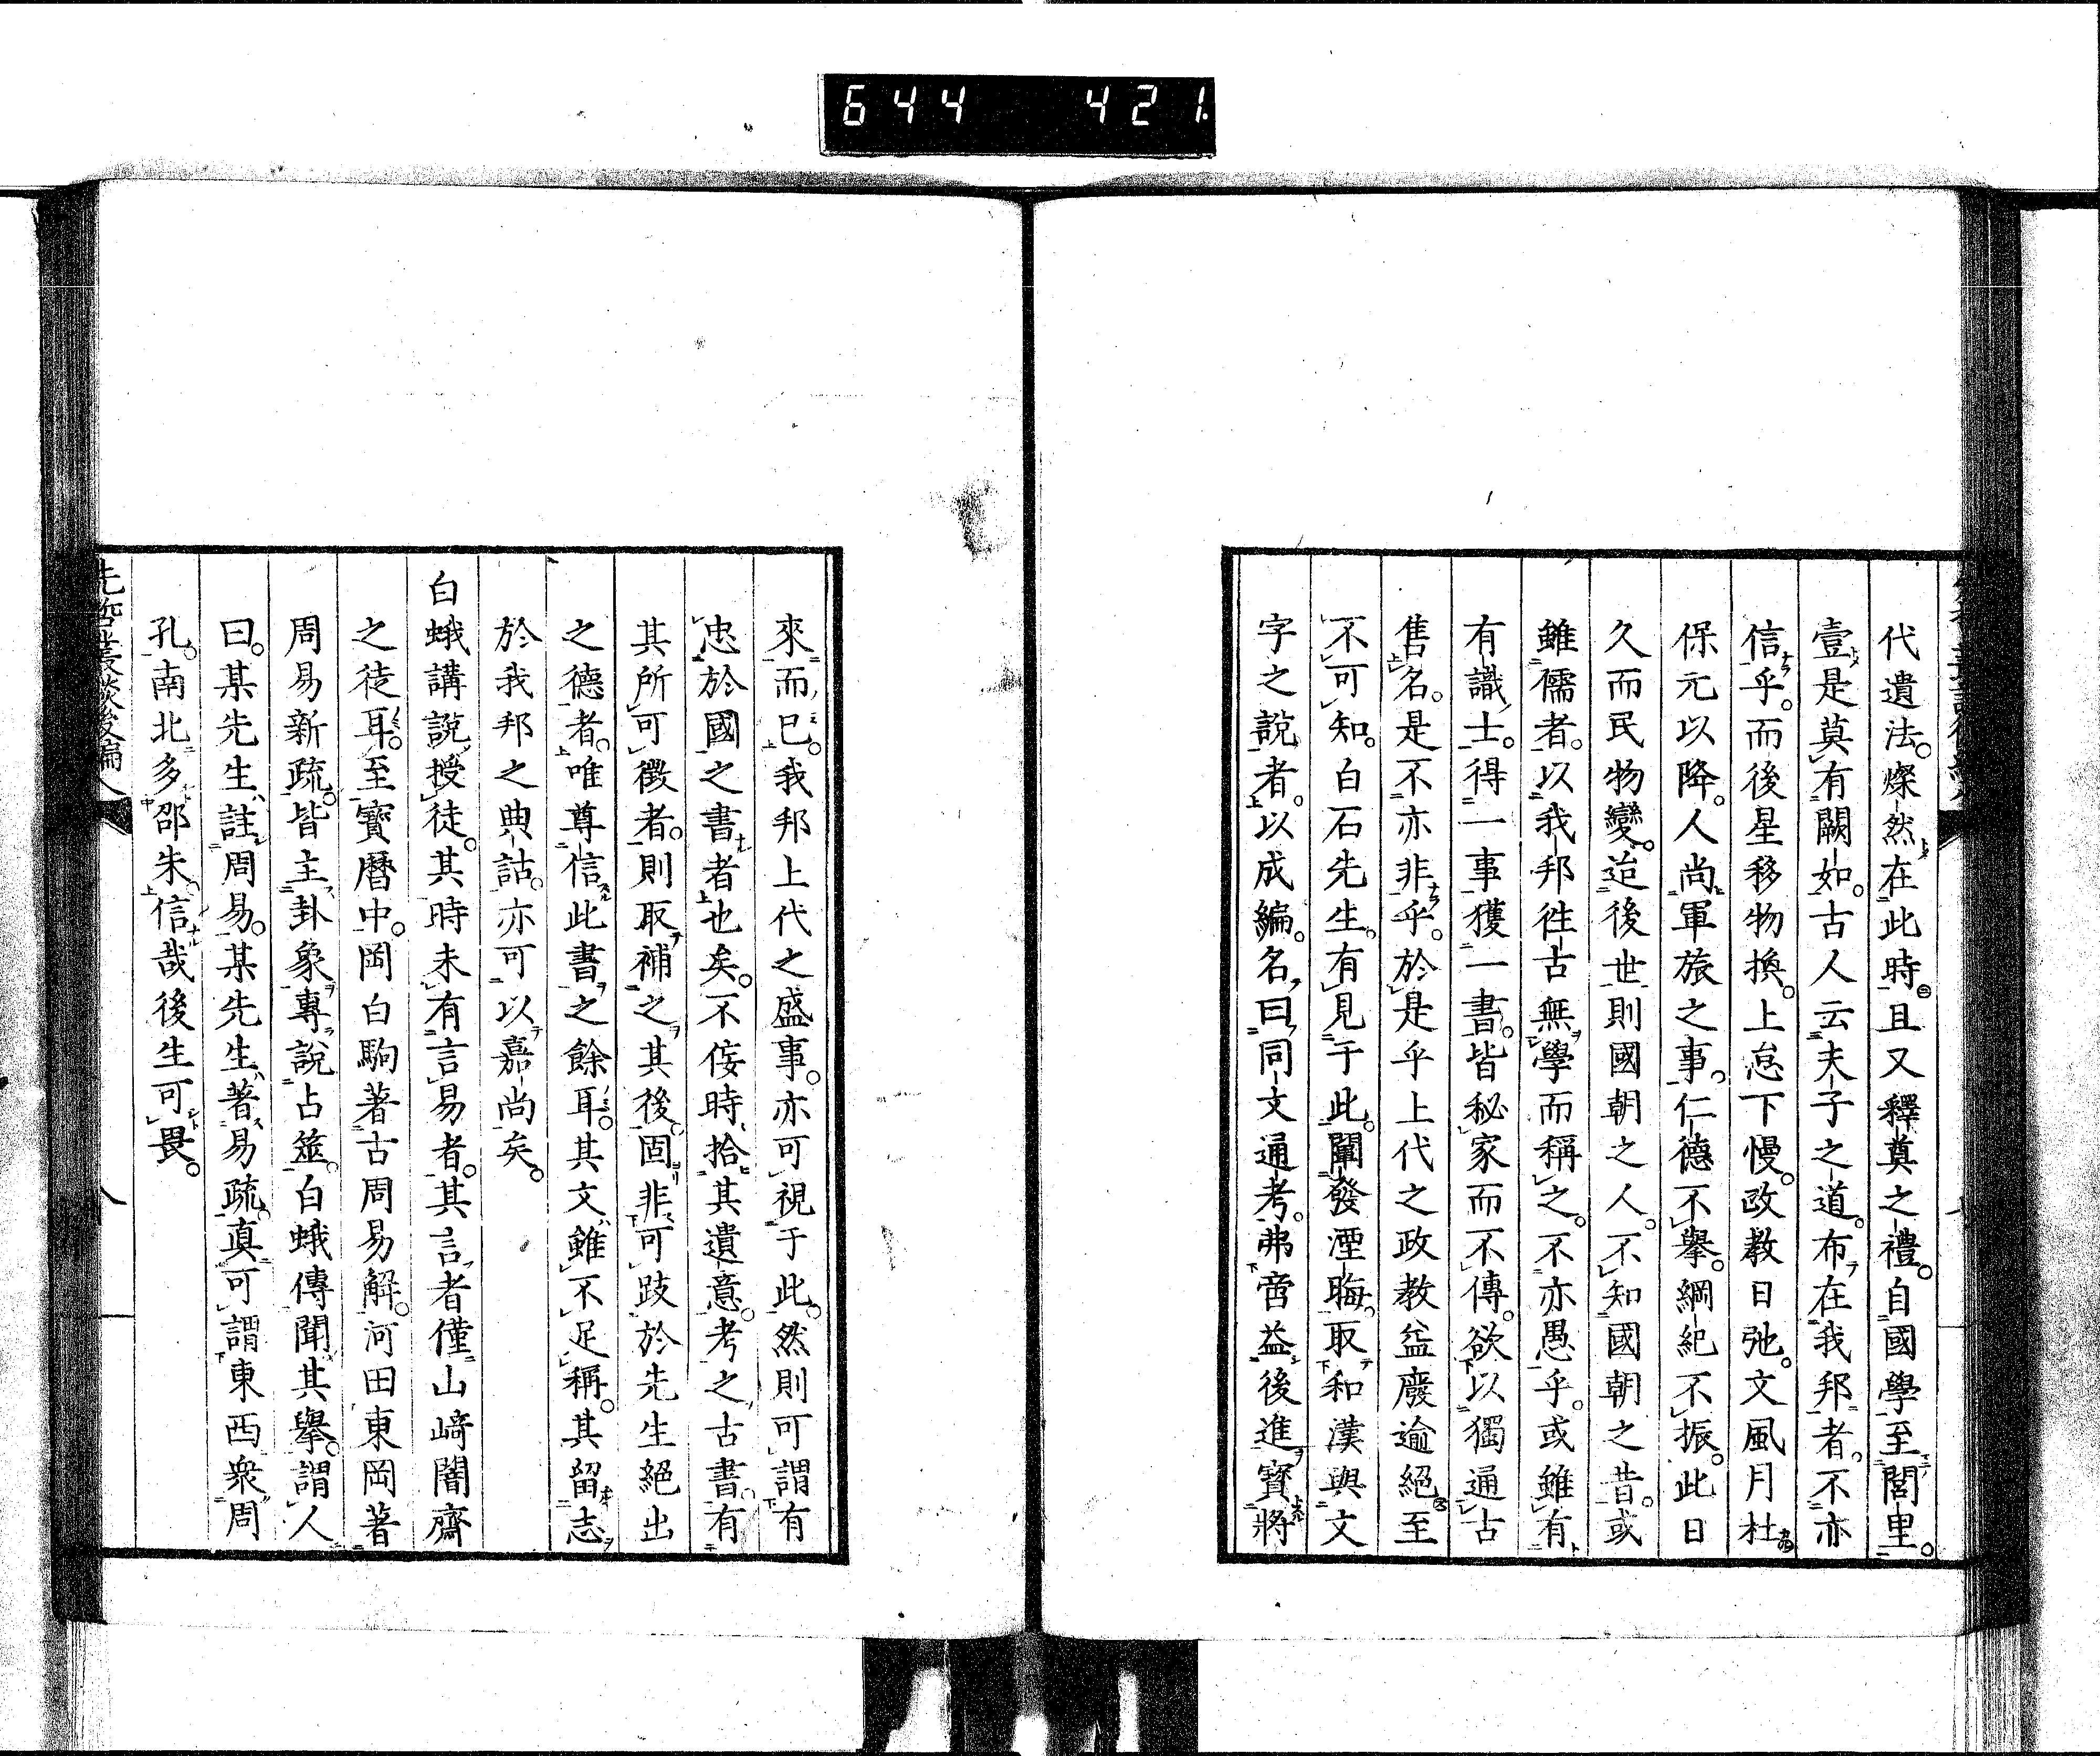 644 421
代遺法。燦然在此時。且又釋奠之禮。自國學至閭里。
壹是莫有闕如。古人云。夫子之道。布在我邦者。不亦
信乎。而後星移物換。上怠下慢。政教日弛。文風月杜
保元以降。人尚軍旅之事。仁德不擧。綱紀不振。此日
久而民物變。迨後世則國朝之人。不知國朝之昔。或
雖儒者。以我邦徃古無學而稱之。不亦愚乎。或雖有
有識士。得一事獲一書。皆秘家而不傳。欲以獨通古
售名。是不亦非乎。於是乎上代之政教益廢逾絕。至
不可知。白石先生。有見于此。闡發湮晦。取和漢與文
字之說者。以成編。名曰同文通考。弗啻益後進。寶將
來而已。我邦上代之盛事。亦可視于此。然則可謂有
忠於國之書者也矣。不侫時拾其遺意。考之古書。有
其所可徵者。則取補之其後。固非可跂於先生絕出
之德者。唯尊信此書之餘耳。其文雖不足稱。其留志
於我邦之典詁。亦可以嘉尚矣。
白蛾講說授徒。其時未有言易者。其言者僅山﨑闇齋
之徒耳。至寶曆中。岡白駒著古周易解。河田東岡著
周易新疏。皆主卦象。專說占筮。白蛾傳聞其擧。謂人
曰。某先生註周易。某先生著易疏。眞可謂東西衆周
孔。南北多邵朱。信哉後生可畏。
先哲叢談後編 八